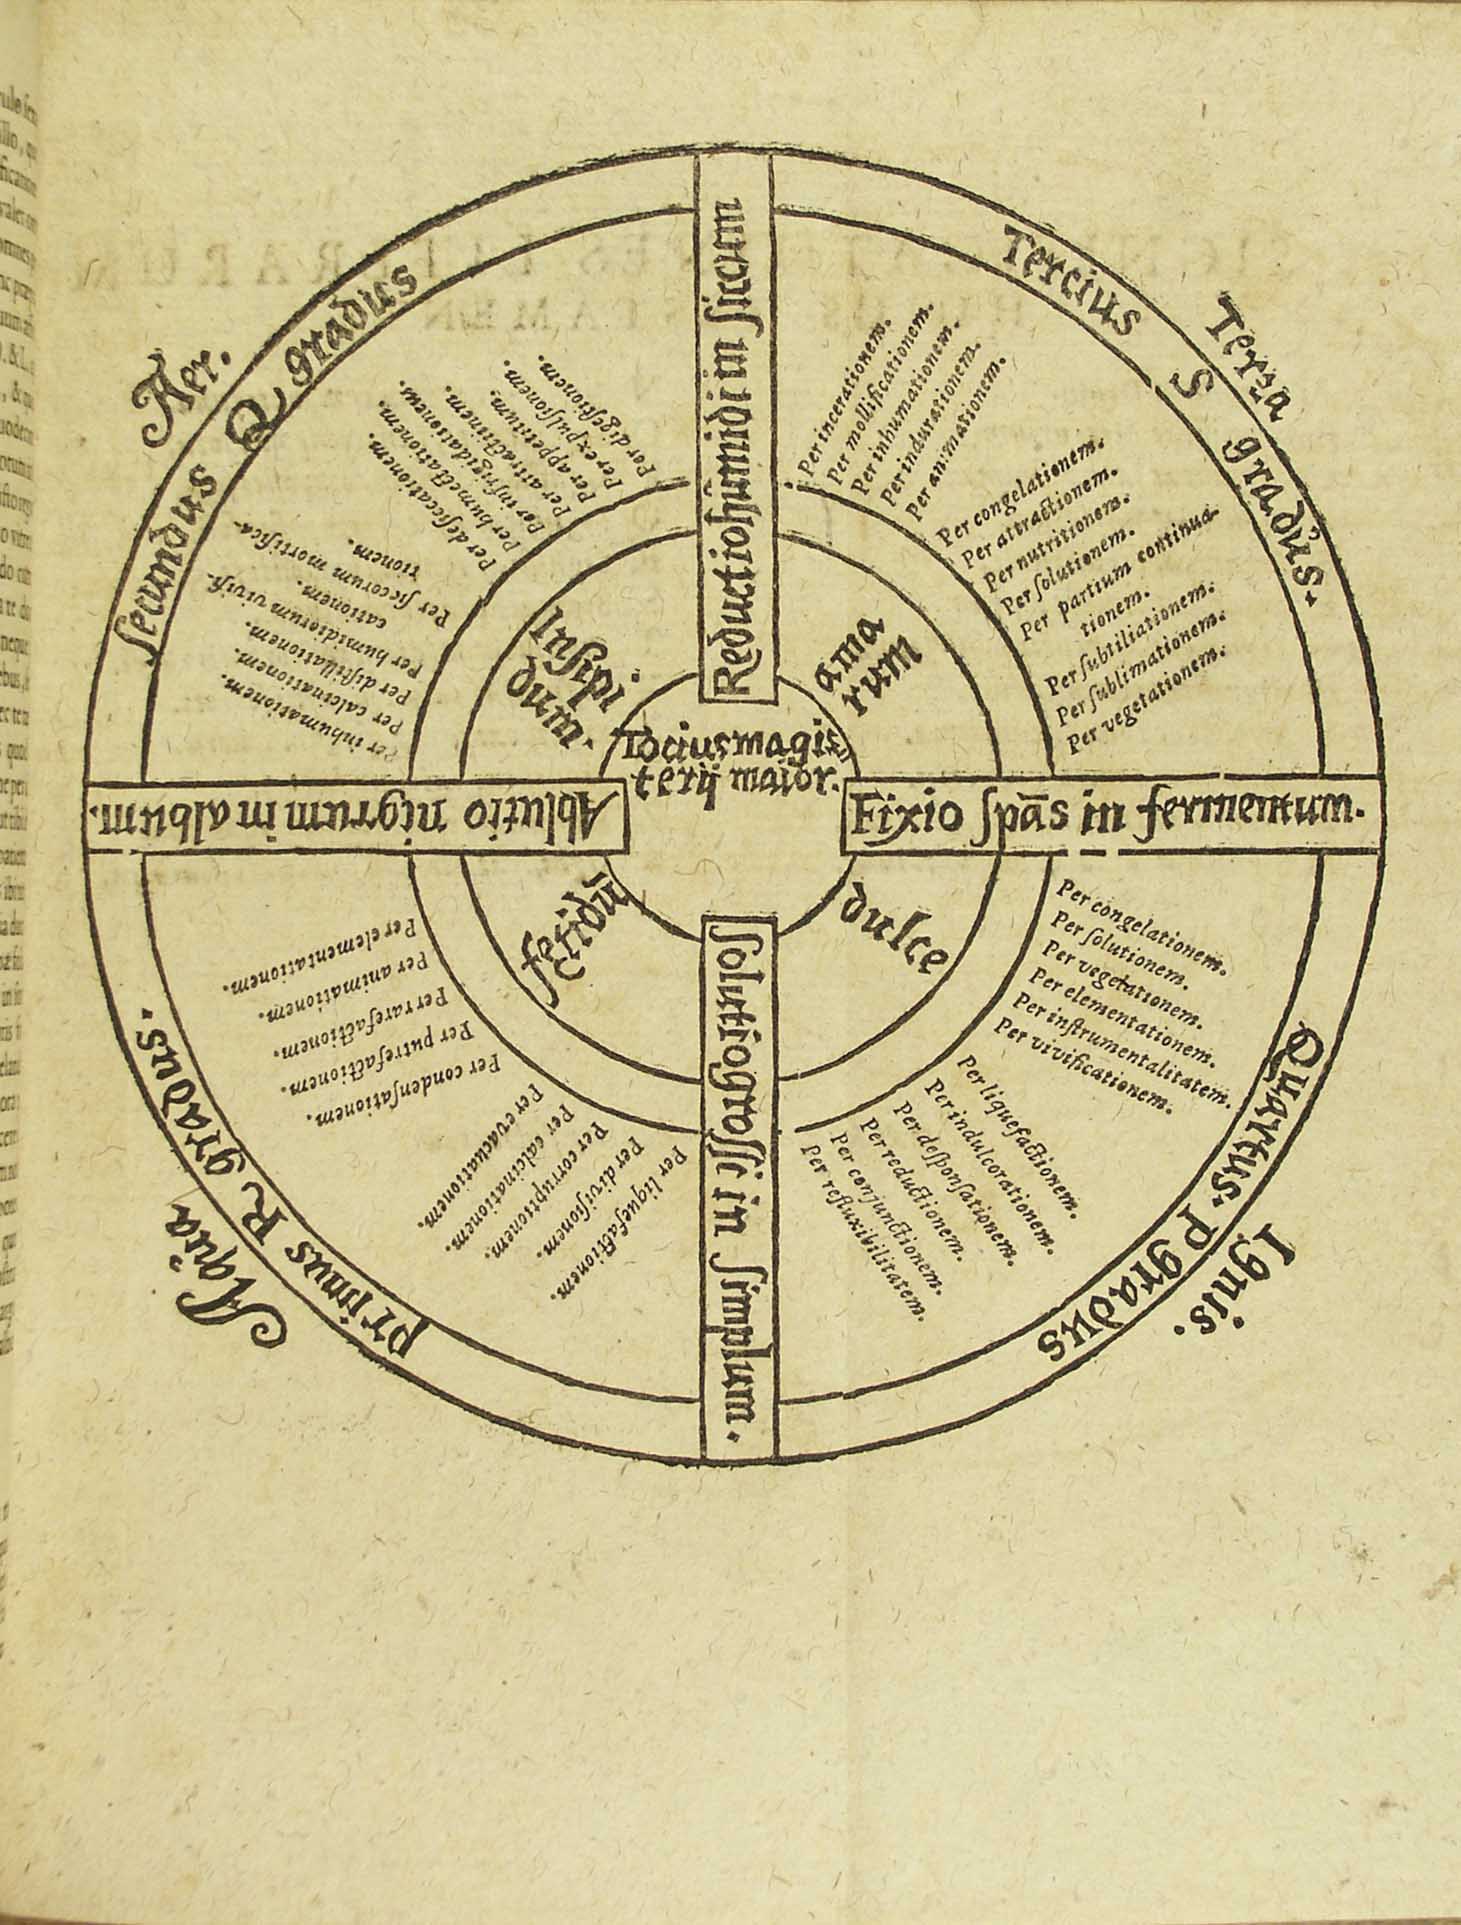 Tocius magis
terij maior.
Reductio hûmidi in ſiccum
Fixio ſpās in fermentum.
ſolutio groſſi in ſimplum.
Ablutio nigrum in album.
Aqua
primus R gradus.
fetidū
Per elementationem.
Per animationem.
Per rarefactionem.
Per putrefactionem.
Per condenſationem.
Per evacuationem.
Per calcinationem.
Per corruptionem.
Per diviſionem.
Per liquefactionem.
Aer.
ſecundus Q gradus
Per inhumationem.
Per calcinationem.
Per diſtillationem.
Per humidiorum viviſi-
cationem.
Per ſiccorum mortifica-
tionem.
Per deſiccationem.
Per humectationem.
Per infrigidationem.
Per attractionem.
Per appetitum.
Per expulſionem.
Per digeſtionem.
Terra
Tercius S gradūs.
ama
rum
Per incerationem.
Per mollificationem.
Per inhumationem.
Per indurationem.
Per animationem.
Per congelationem.
Per attractionem.
Per nutritionem.
Per ſolutionem.
Per partium continua-
tionem.
Per ſubtiliationem.
Per ſublimationem.
Per vegetationem.
Ignis.
Quartus. P gradus
dulce
Per congelationem.
Per ſolutionem.
Per vegetationem.
Per elementationem.
Per inſtrumentalitatem.
Per vivificationem.
Per liquefactionem.
Per indulcorationem.
Per deſponſationem.
Per reductionem.
Per conjunctionem.
Per refluxibilitatem.